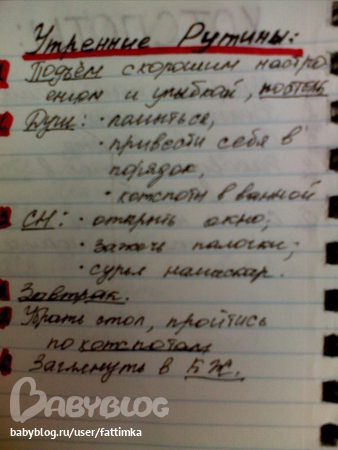 Утренние Рутины:
Подъём с хорошим настро
ением и улыбкой, постель
Душ: • помыться,
• привести себя в
порядок,
• хотспоты в ванной
СН: • открыть окно;
• зажечь палочки;
• сурья намаскар.
Завтрак.
Убрать стол, пройтись
по хотспотам
Заглянуть в БЖ.
BABYBLOG
babyblog.ru/user/fattimka